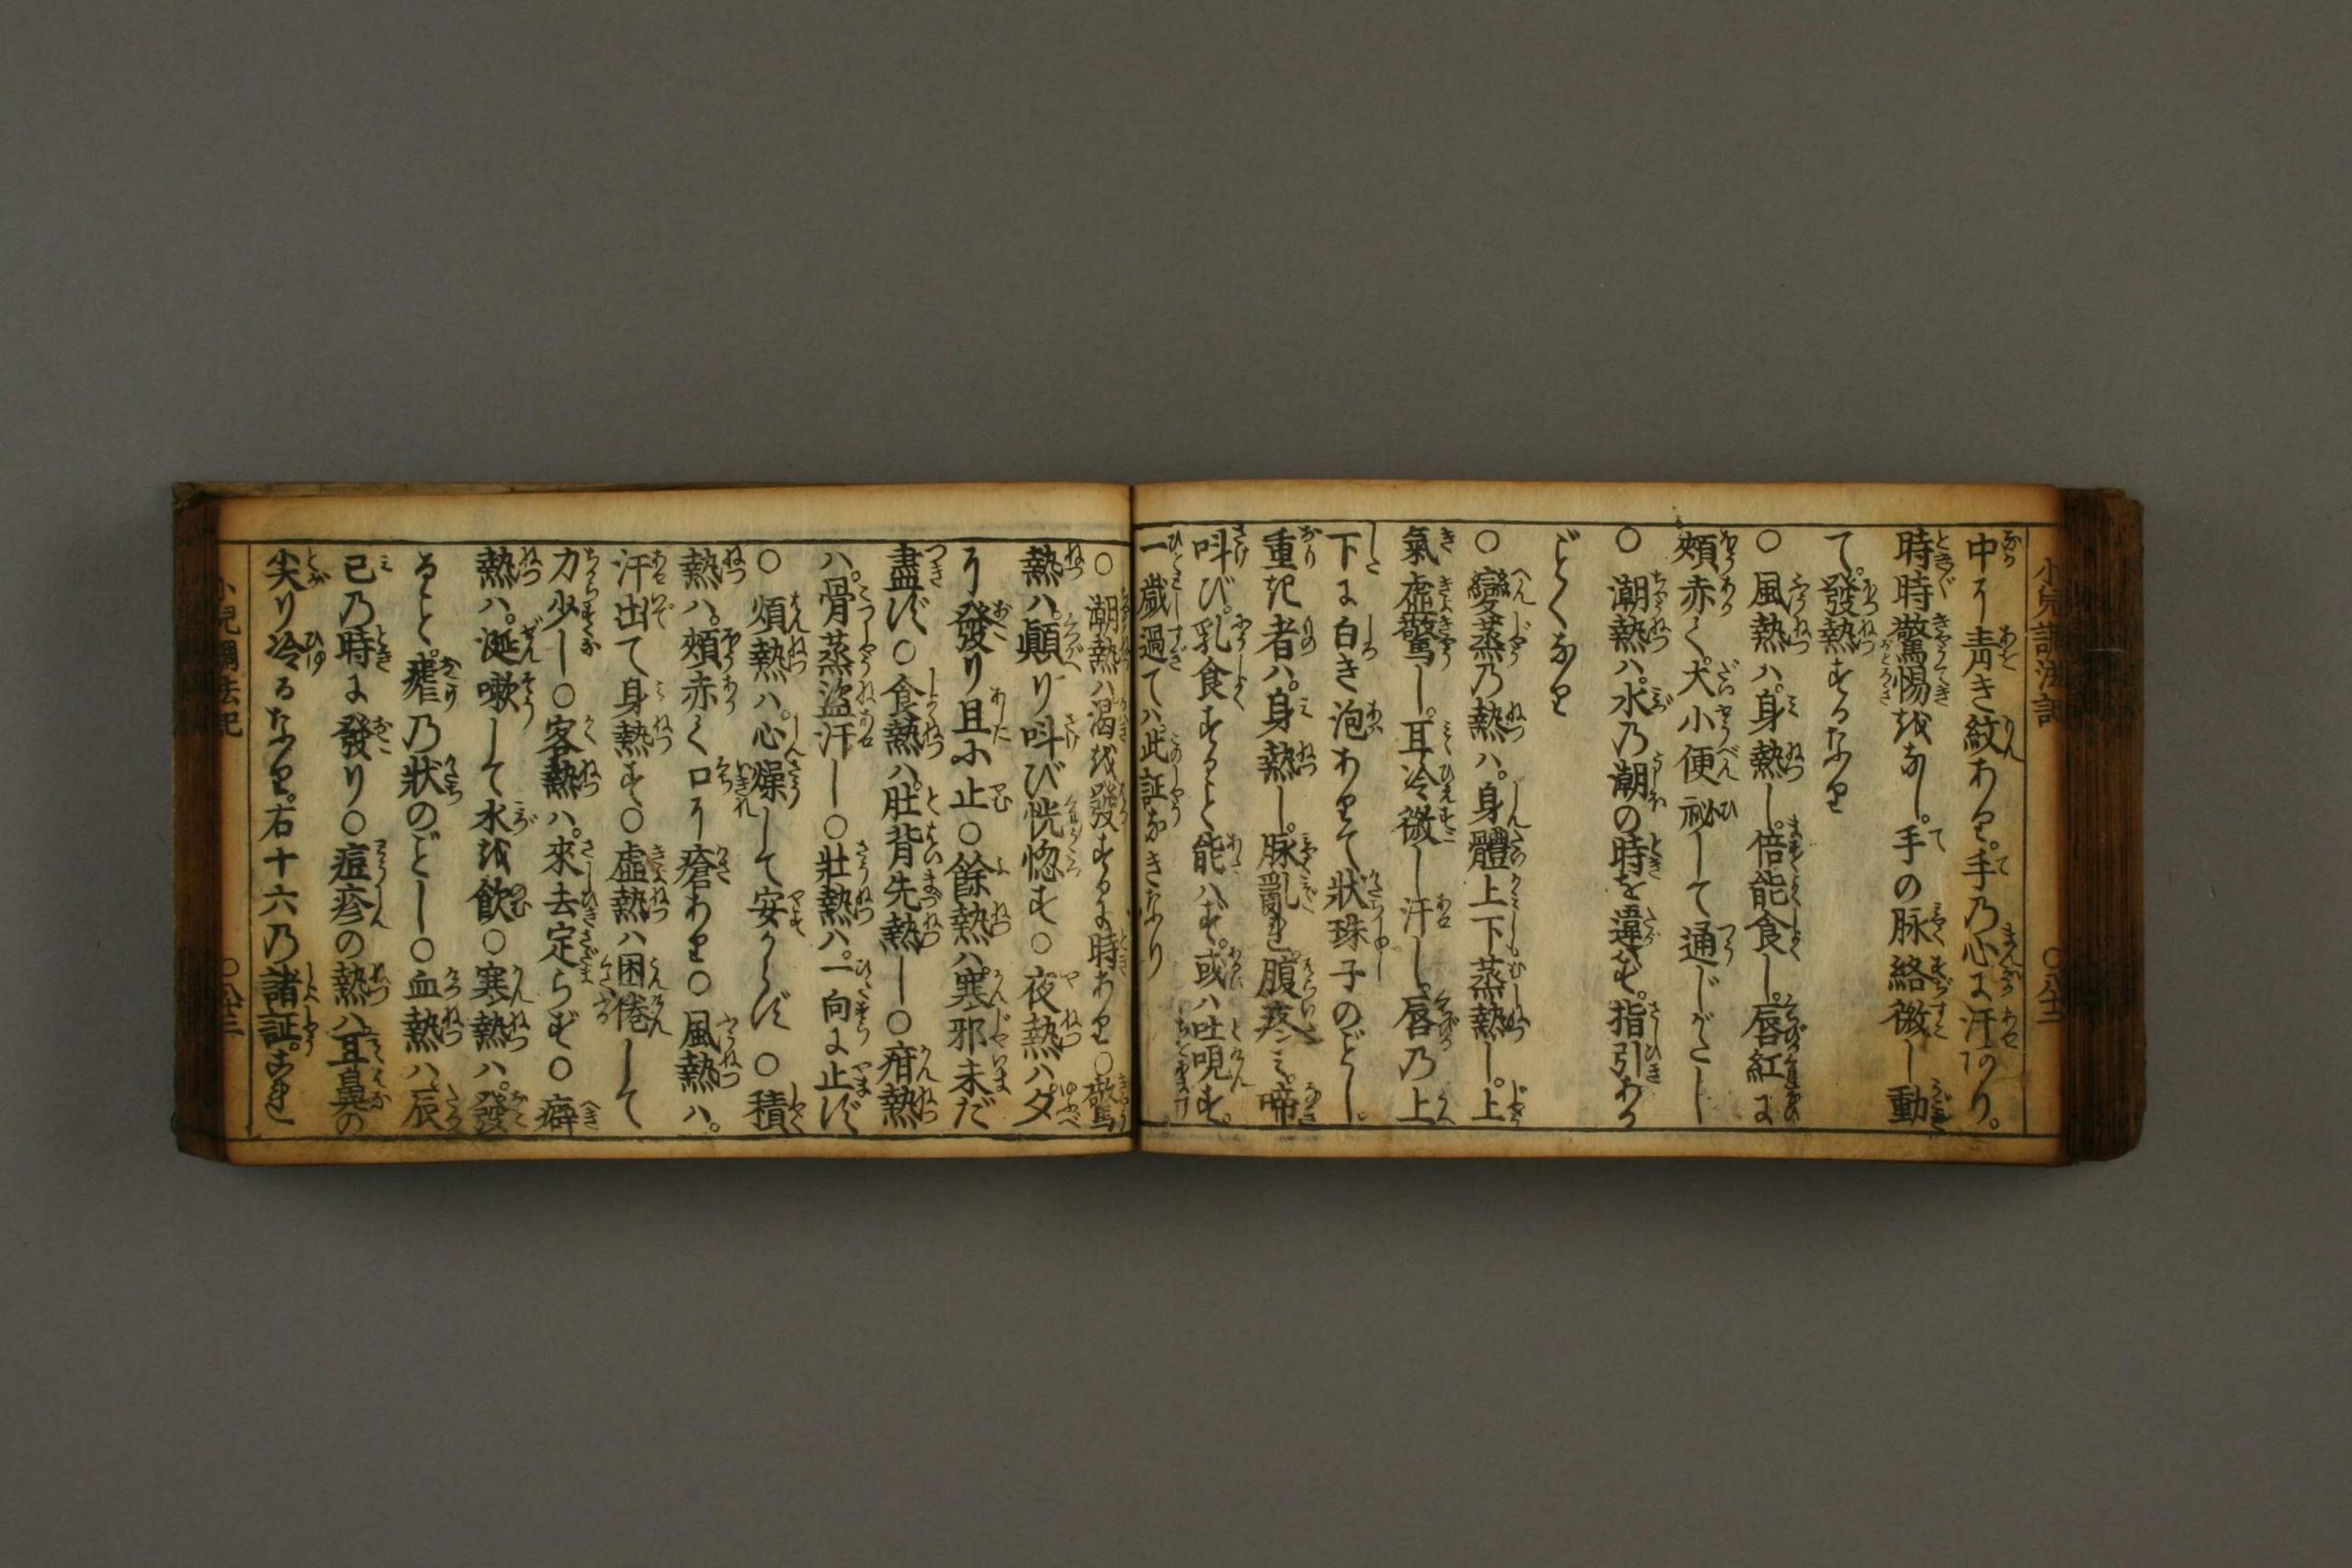 小兒調法記
〇八十二
中に青き紋あり。手乃心に汗あり。
時時驚惕をなし。手の脉絡微し動
て。發熱するなり
〇風熱ハ。身熱し。倍能食し。唇紅に
頬赤く。大小便祕して通じがたし
〇潮熱ハ。水乃潮の時を違ず。指引ある
ごとくなり
〇變蒸乃熱ハ。身體上下蒸熱し。上
氣虚驚し。耳冷微し汗し。唇乃上
下に白き泡ありて状珠子のごとし。
重き者ハ。身熱し。脉亂れ。腹疼ミ。啼
叫び。乳食すること能ハず。或ハ吐哯す。
一歳過てハ此証なきなり
〇潮熱ハ渇を發するに時あり〇驚
熱ハ。顛り叫び恍惚す〇夜熱ハ夕
に發り且に止〇餘熱ハ寒邪未だ
盡ず〇食熱ハ肚背先熱し〇疳熱
ハ。骨蒸盗汗し〇壯熱ハ。一向に止ず
〇煩熱ハ。心燥して安からず〇積
熱ハ。頬赤く口に瘡あり〇風熱ハ。
汗出て身熱す〇虚熱ハ困倦して
力少し〇客熱ハ。來去定らず〇癖
熱ハ。涎嗽して水を飲〇寒熱ハ。發
ること。瘧乃状のごとし〇血熱ハ辰
巳乃時に發り〇痘疹の熱ハ耳鼻の
尖り冷るなり。右十六乃諸証。これ
小兒調法記
〇八十三